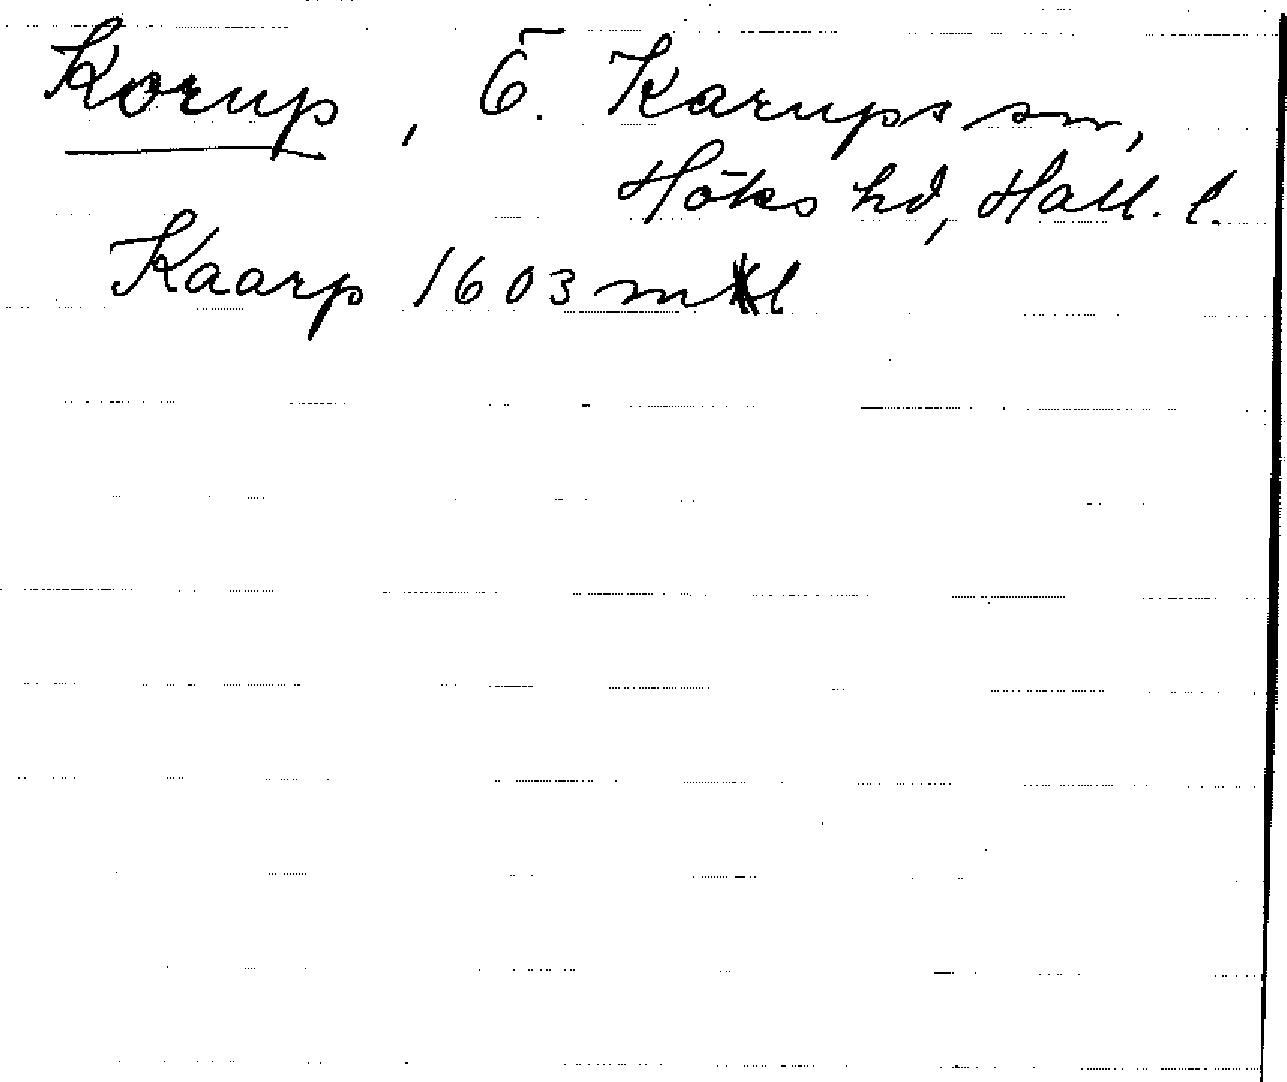 Korup, Ö. Karups sn,
Höks hd, Hall. l.
Kaarp 1603 ml